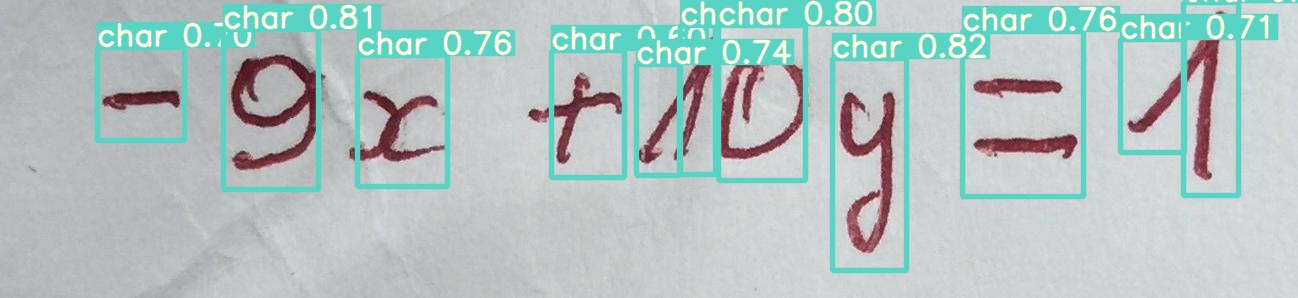 char 0.70 char 0.81 char 0.76 char 0.60 char 0.74 char 0.80 char 0.82 char 0.76 char 0.71
-9x +10y = 1